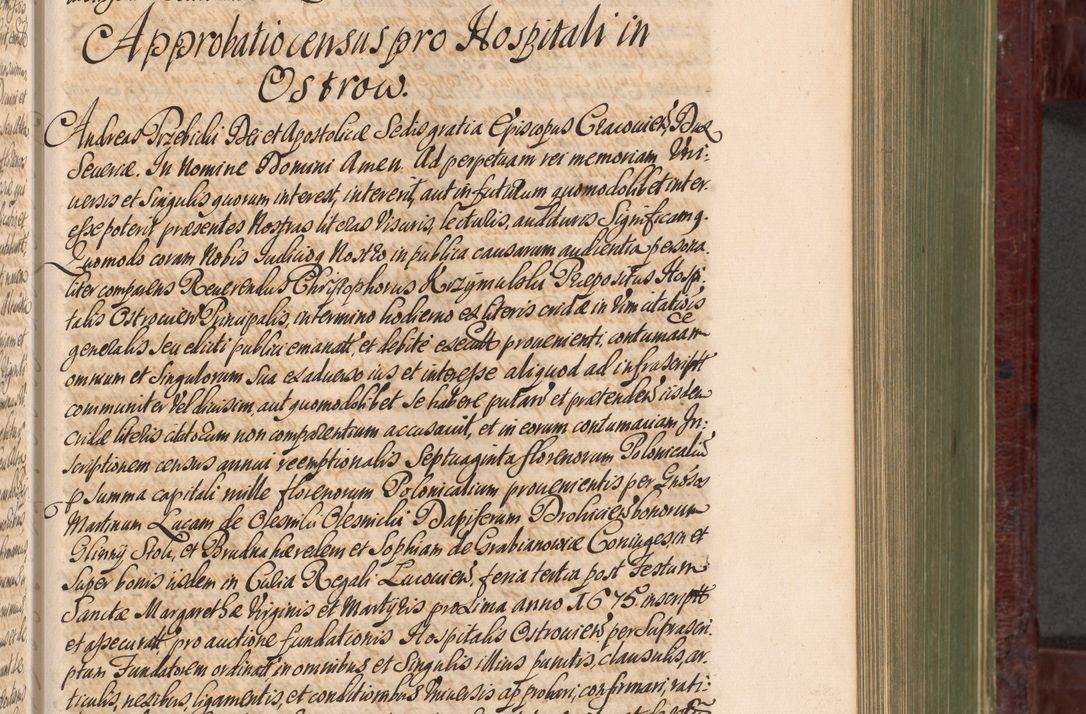 Approbatio census pro Hospitali in
Ostrow.
Andreas Trzebicki Dei et Apostolicæ Sedis gratia Episcopus Cracovien, Dux
Severiæ. In Nomine Domini Amen. Ad perpetuam rei memoriam Uni:
versis et Singulis quorum interest, intererit, aut in futurum quomodolibet inter
esse poterit præsentes Nostras literas Visuris, lecturis, audituris Significamq.
Quomodo coram Nobis Judicioq Nostro in publica causarum audientia persona
liter comparens Reverendus Christophorus Krzymulski Præpositus Hospi
talis Ostrovien Principalis, in termino hodierno ex literis cridæ in vim citatiois
generalis seu edicti publici emanatt, et debite executt provenienti, contumaciam
omnium et Singulorum Sua ex adverso ius et interesse aliquod ad infrascriptt
communiter vel divisim, aut quomodolibet se habere putan et prætenden iisdem
cridæ literis citatorum non comparentium accusavit, et in eorum contumaciam In:
scriptionem census annui reemptionalis Septuaginta florenorum Polonicaliu
p Summa capitali mille florenorum Polonicalium provenientis per Gnosos
Martinum Lucam de Olesniki Olesnicki Dapiferum bonorum
Glinny Stok, et Brudna hæredem et Sophiam de Grabianowiæ Coniuges, in et
Super bonis iisdem in Curia Regali Lucovien, feria tertia post Festum
Sanctæ Margarethæ Virginis et Martyris proxima anno 1675 inscriptt
et assecuratt pro auctione fundationis Hospitalis Ostrovien per Suprascri
ptum Fundatorem ordinatt in omnibus et Singulis illius punctis, clausulis, ar:
ticulis, nexibus, ligamentis, et conditionibus Universis approbari, confirmari, rati: